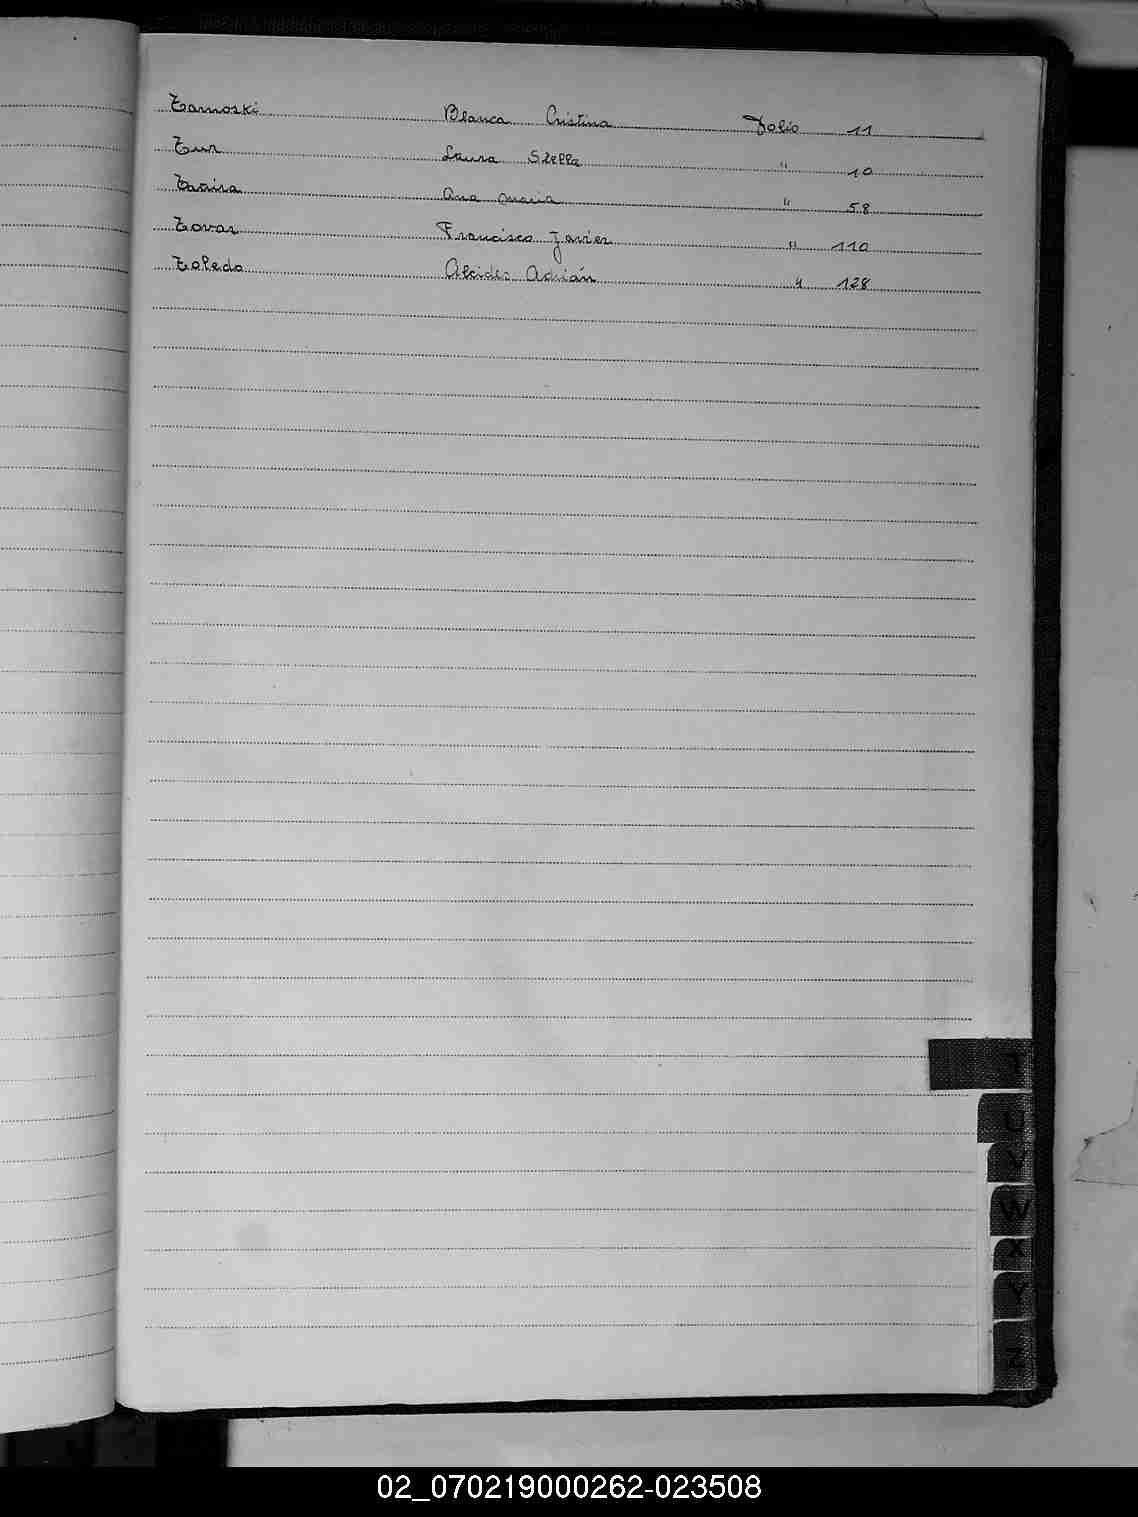 Tarnoski Blanca Cristina Folio 11
Tur Laura Stella " 10
Ana Maria " 58
Tovar Francisco Javier " 110
Toledo Alcides Adrián " 128
T
U
V
W
X
Y
Z
02_070219000262-023508